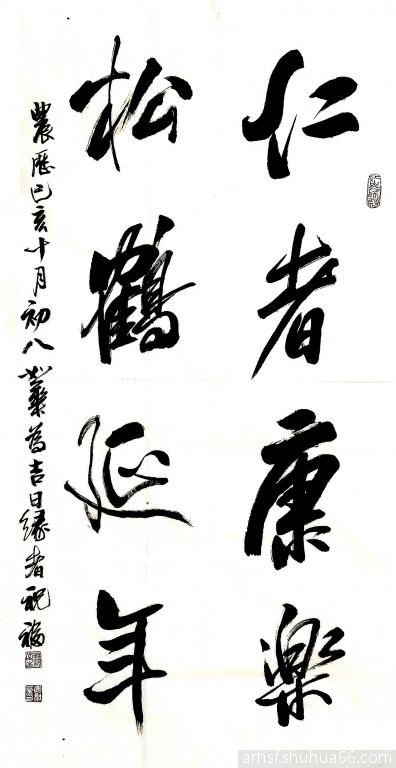 仁者康樂
松鶴延年
農歷己亥十月初八
為吉日緣者祝福
arhst.shuhua66.com